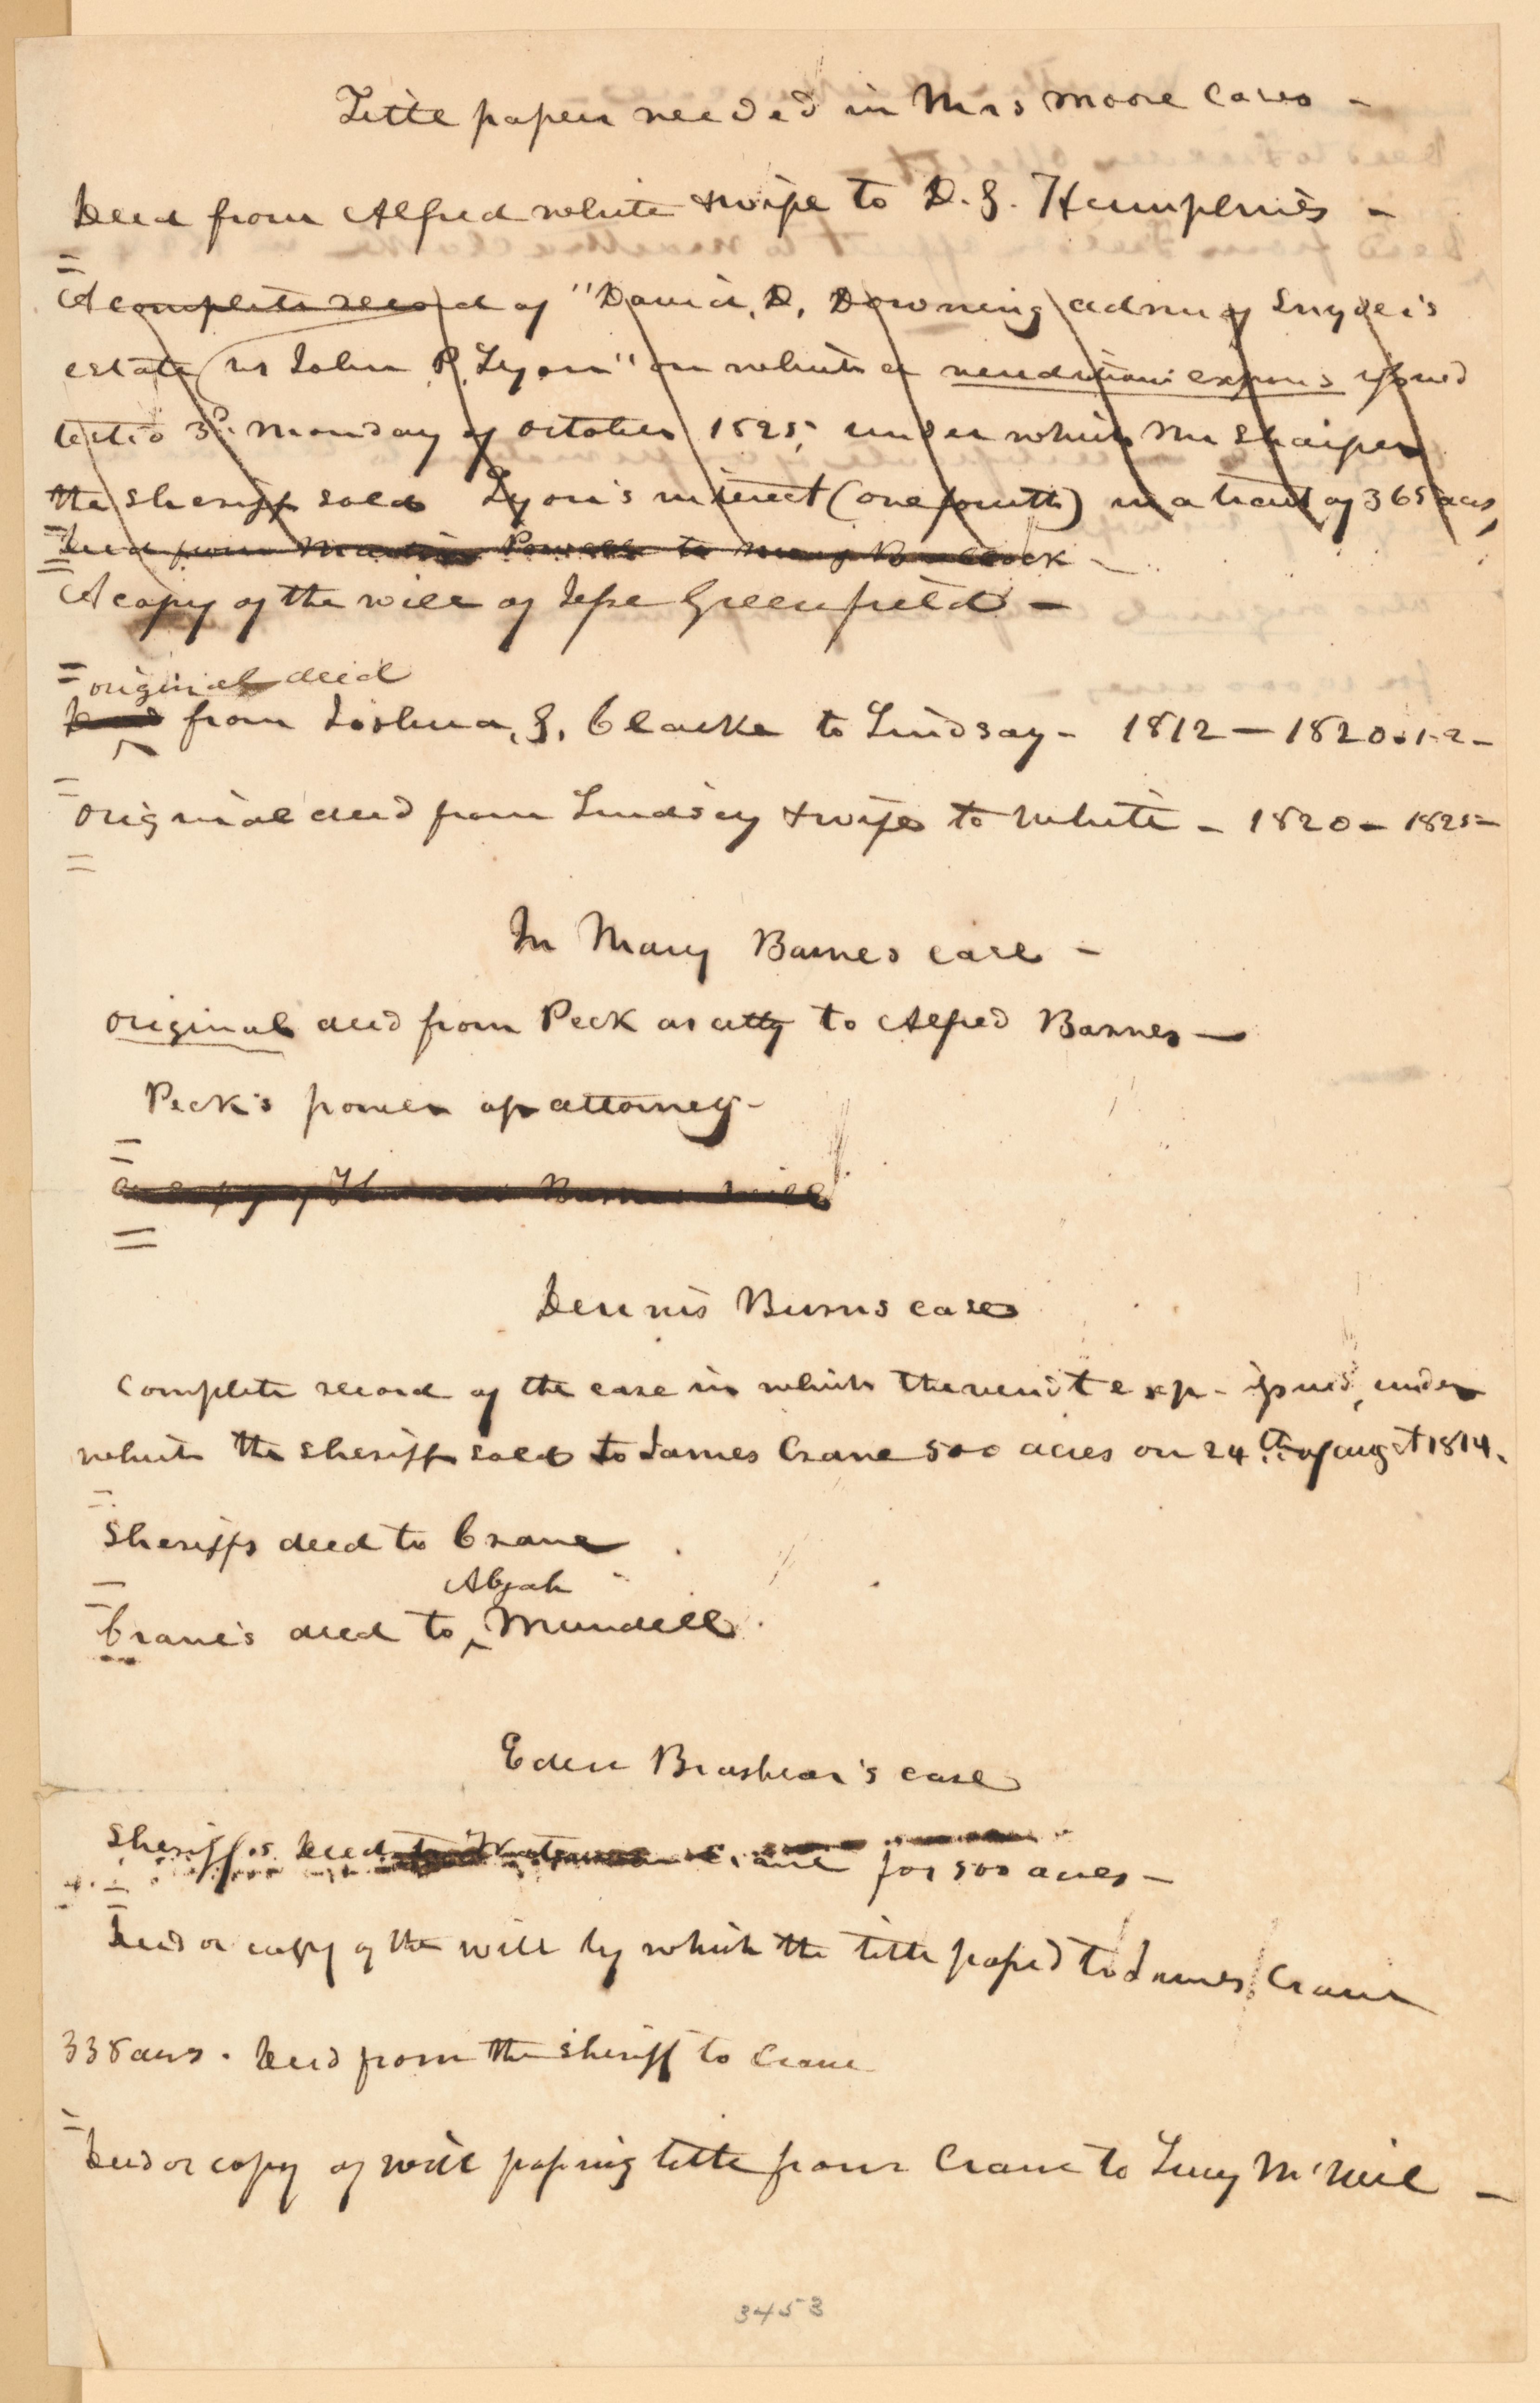 Title papers needed in Mrs Moore Cases -
Deed from Alfred White & wife to D. G. Humphries -
A complete record of "David, D, Downing adm of Snyder's
estate vs John R, Lyon" on which a venditioni exponas issued
tested 3d. Monday of October 1825, under which Mr Sharper
the sheriff sold Lyon's interest (one fourth) in a tract of 365 acres,
Deed from Powells to Mary Bullock -
A copy of the will of Jesse Greenfield -
original deed
Deed from Joshua, G, Clarke to Lindsay - 1812 - 1820.1-2-
original deed from Lindsay & wife to White - 1820 - 1825 -
In Mary Barnes case -
original deed from Peck as atty to Alfred Barnes -
Peck's power of attorney -
a copy of Barnes will
Dennis Burns case
Complete record of the case in which the vendt exp - issued, under
which the sheriff sold to James Crane 500 acres on 24th of augst 1814.
Sheriffs deed to Crane
Abjah
Crane's deed to ‸ Mundell.
Eden Brashear's case
Sheriff's Deed for 500 acres -
Deed or copy of the will by which the title passed to James Crane
338 acres. Deed from the Sheriff to Crane
Deed or copy of will passing title from Crane to Lucy McNeil -
3453